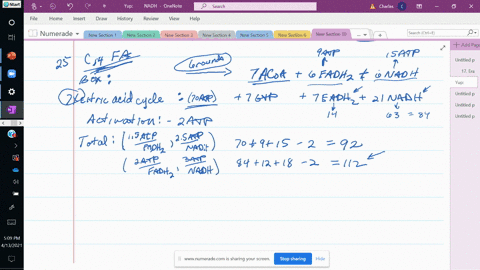 Start
Typ: NADH - OneNote
Charles
File Home Insert Draw History Review View Help
Numerade
New Section 1 New Section 2 New Section 3 New Section 4 New Section 5 New Section 6 New Section 7 New Section 8 New Section 9 New Section 10
Search (Ctrl+E)
Add Page
Untitled p
Untitled p
Untitled p
Untitled p
25 C14 FAs
βox:
Grounds
9ATP 15ATP
7ACoA + 6FADH2 + 6NADH
7 citric acid cycle : 70ATP + 7GTP + 7FADH2 + 21NADH
14 63 = 84
Activation: - 2ATP
Total: (1.5ATP/FADH2, 2.5ATP/NADH) 70 + 9 + 15 - 2 = 92
(2ATP/FADH2, 3ATP/NADH) 84 + 12 + 18 - 2 = 112
www.numerade.com is sharing your screen. Stop sharing Hide
5:09 PM
Tuesday
4/13/2021